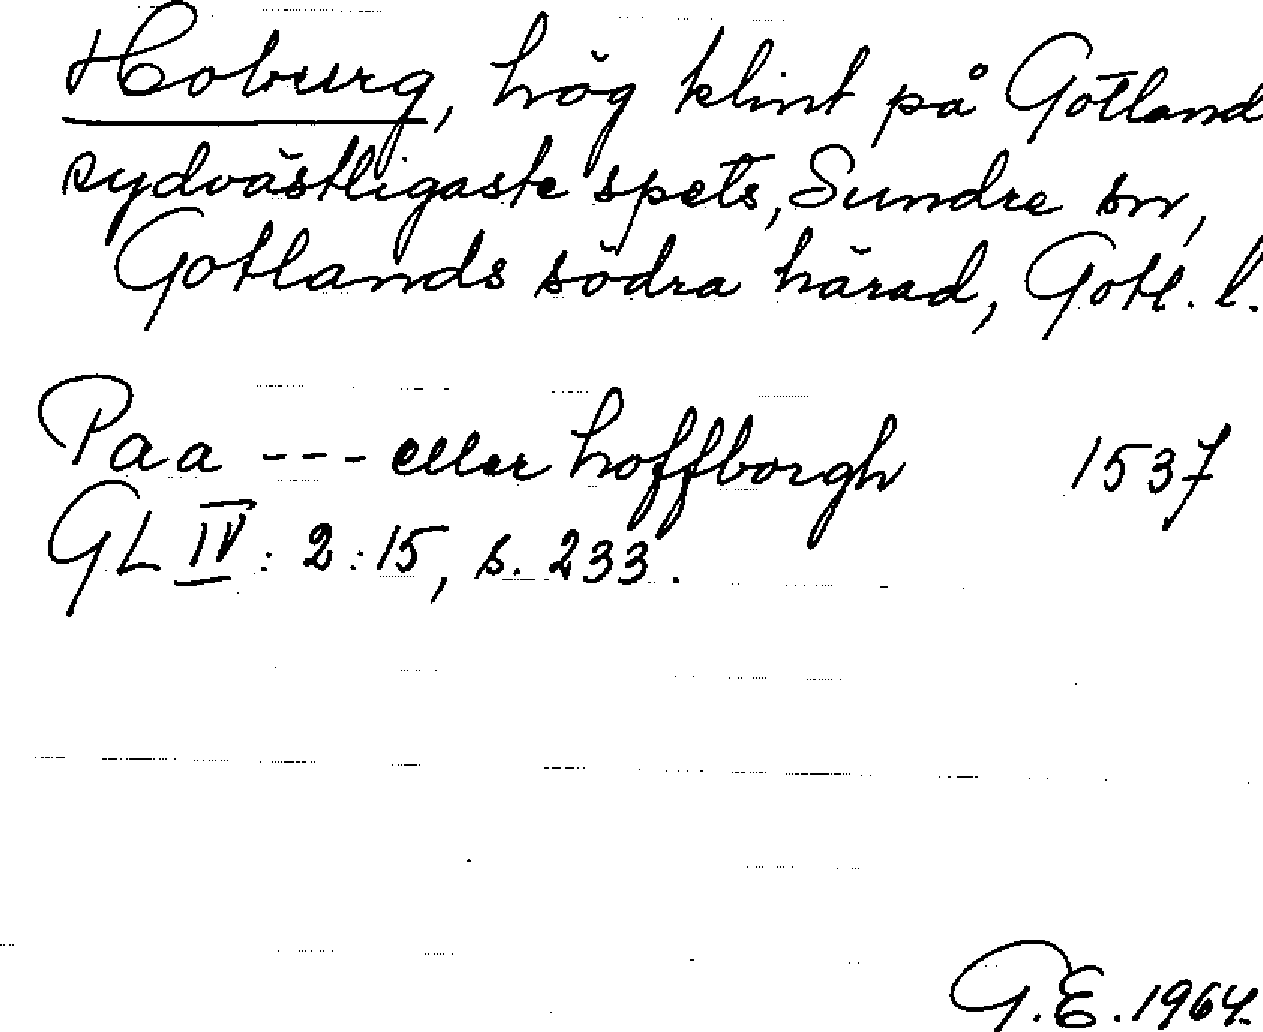 Hoburg, hög klint på Gotland
sydvästligaste spets, Sundre sn,
Gotlands södra härad, Gotl. l.
Paa --- eller hoffborgh 1537
GL IV : 2:15, s. 233.
G.E. 1964.